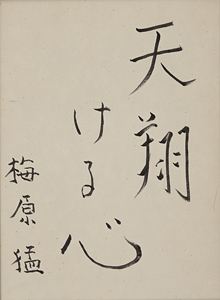 天翔
ける心
梅原猛